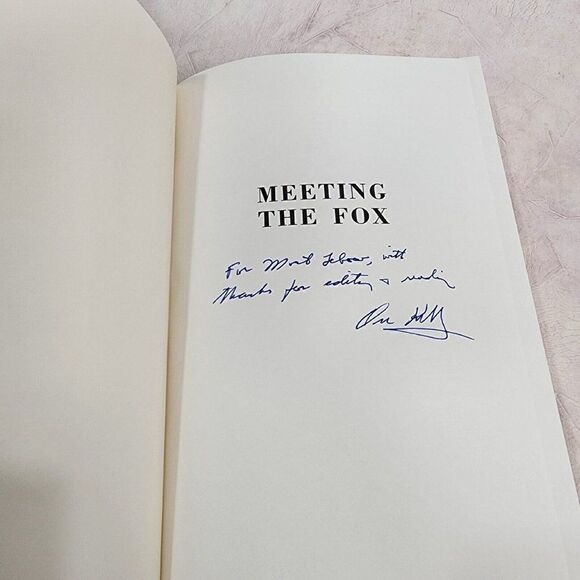 MEETING
THE FOX
For Mort Lebow, with
thanks for editing & reading
Orr Kelly